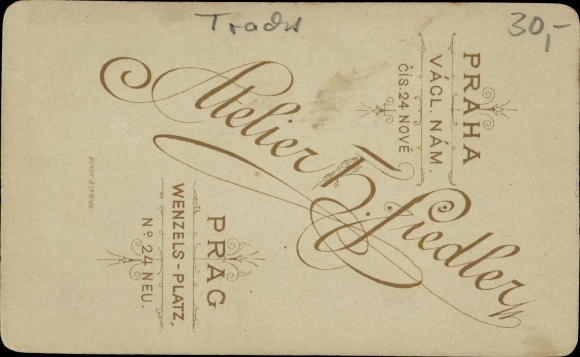 30,-
Atelier H. Fiedler
PRAHA
VÁCL. NÁM.
ČÍS. 24 NOVÉ
PRAG
WENZELS-PLATZ,
No. 24 NEU.